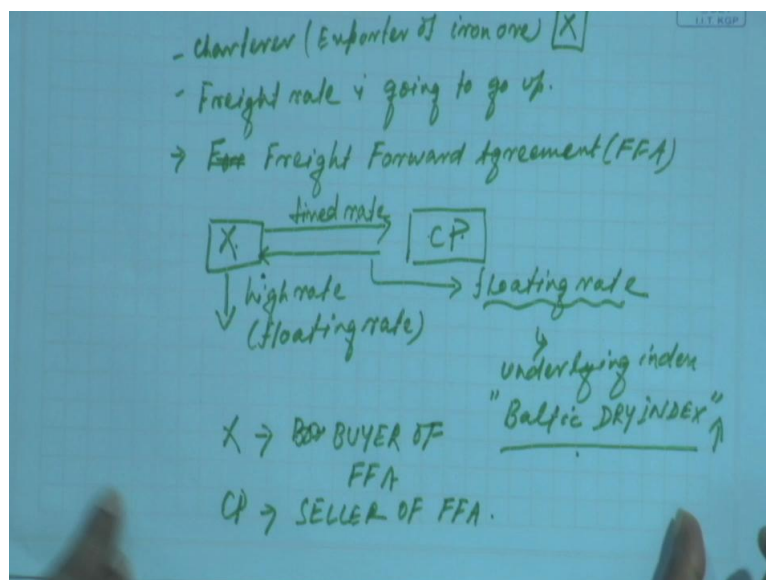 I.I.T. KGP
- Charterer (Exporter of iron ore) X
- Freight rate is going to go up.
→ Freight Forward Agreement (FFA)
fixed rate
X. CP.
high rate
(floating rate)
→ floating rate
underlying index
"Baltic DRY INDEX" ↑
X → BUYER OF
FFA
CP → SELLER OF FFA.